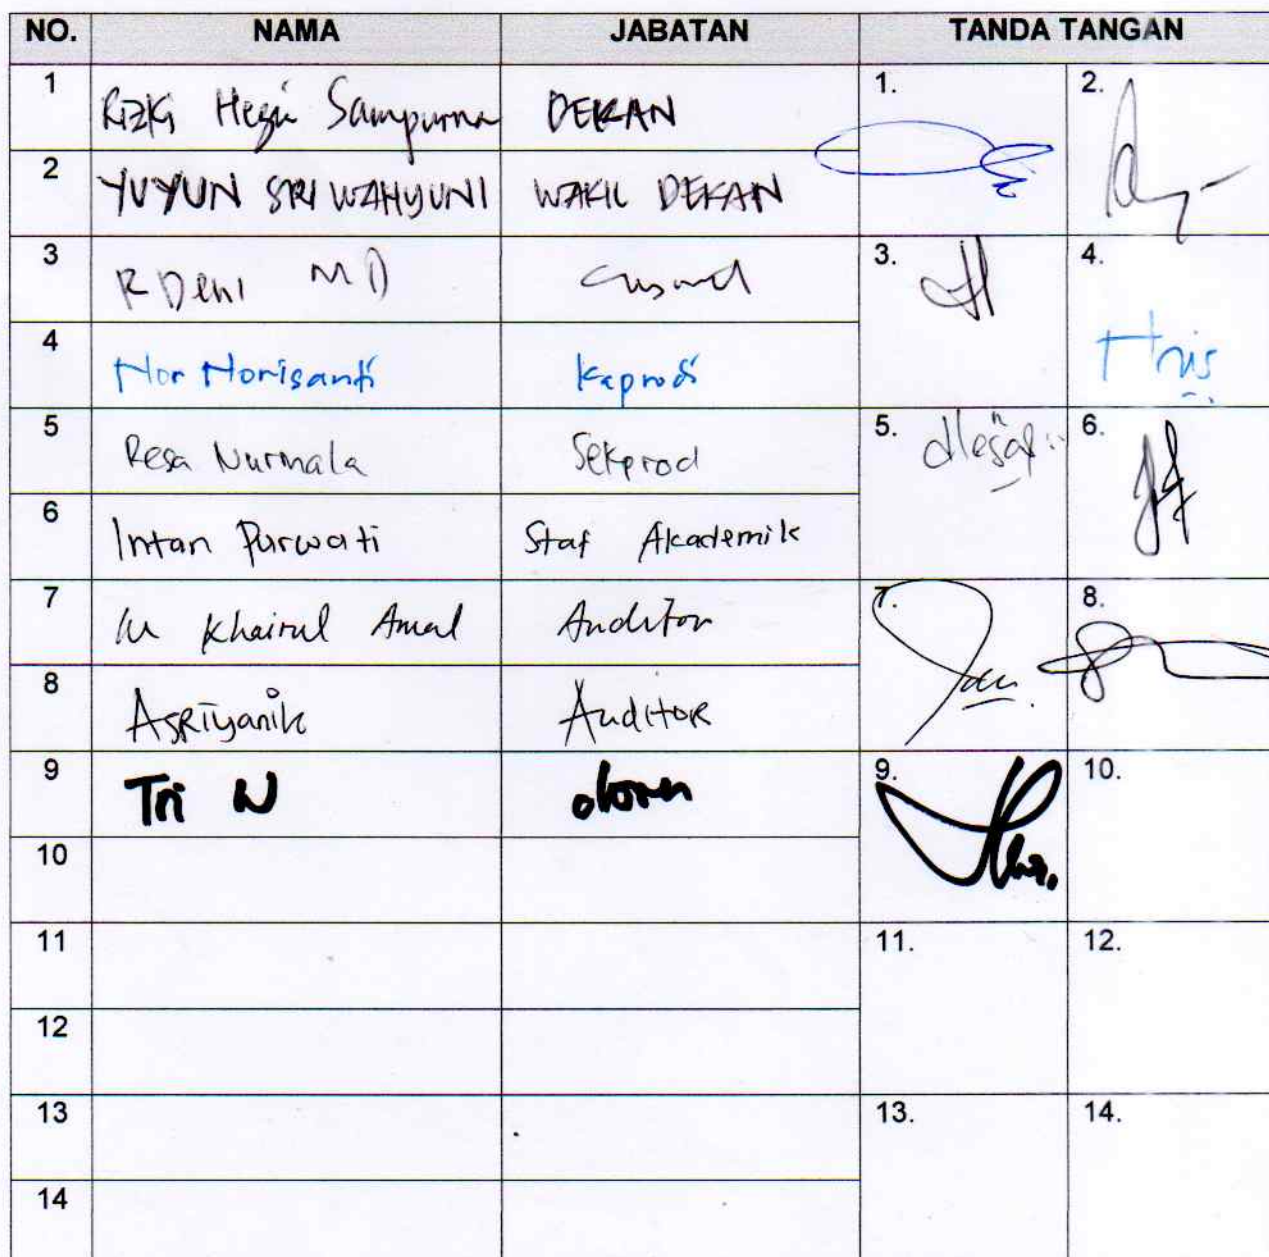 NO. NAMA JABATAN TANDA TANGAN
1 Rizki Hegia Sampurna DEKAN 1. 2.
2 YUYUN SRI WAHYUNI WAKIL DEKAN
3 R Deni MD 3. 4.
4 Nor Norisanti Kaprodi
5 Resa Nurmala Sekprod 5. 6.
6 Intan Purwati Staf Akademik
7 M Khairul Amal Auditor 7. 8.
8 ASRiyanik Auditor
9 Tri N dosen 9. 10.
10
11 11. 12.
12
13 13. 14.
14